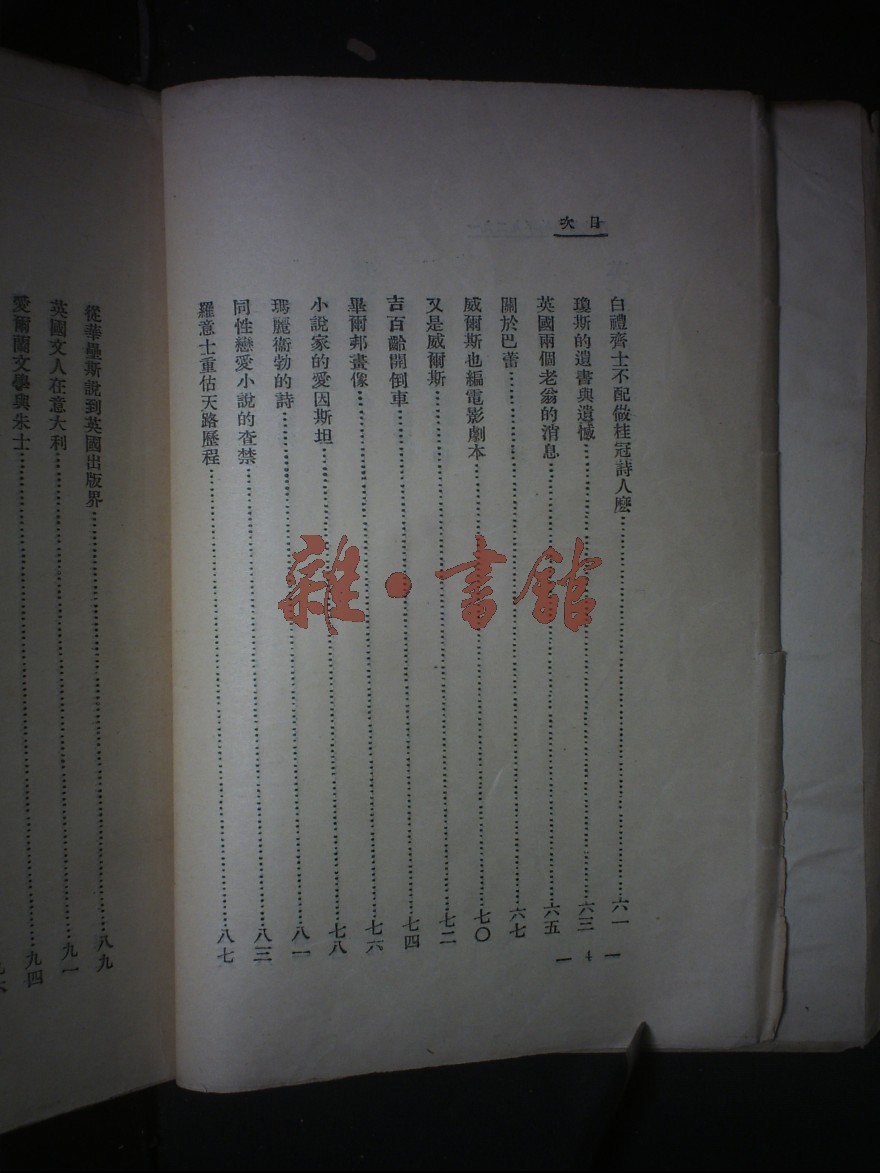 目次
白禮齊士不配做桂冠詩人麼……六一
瓊斯的遺書與遺憾……六三
英國兩個老翁的消息……六五
關於巴蕾……六七
威爾斯也編電影劇本……七〇
又是威爾斯……七二
吉百齡開倒車……七四
畢爾邦畫像……七六
小說家的愛因斯坦……七八
瑪麗衞勃的詩……八一
同性戀愛小說的查禁……八三
羅意士重估天路歷程……八七
— 4 —
從華壘斯說到英國出版界……八九
英國文人在意大利……九一
愛爾蘭文學與朱士……九四
九六
雜·書館